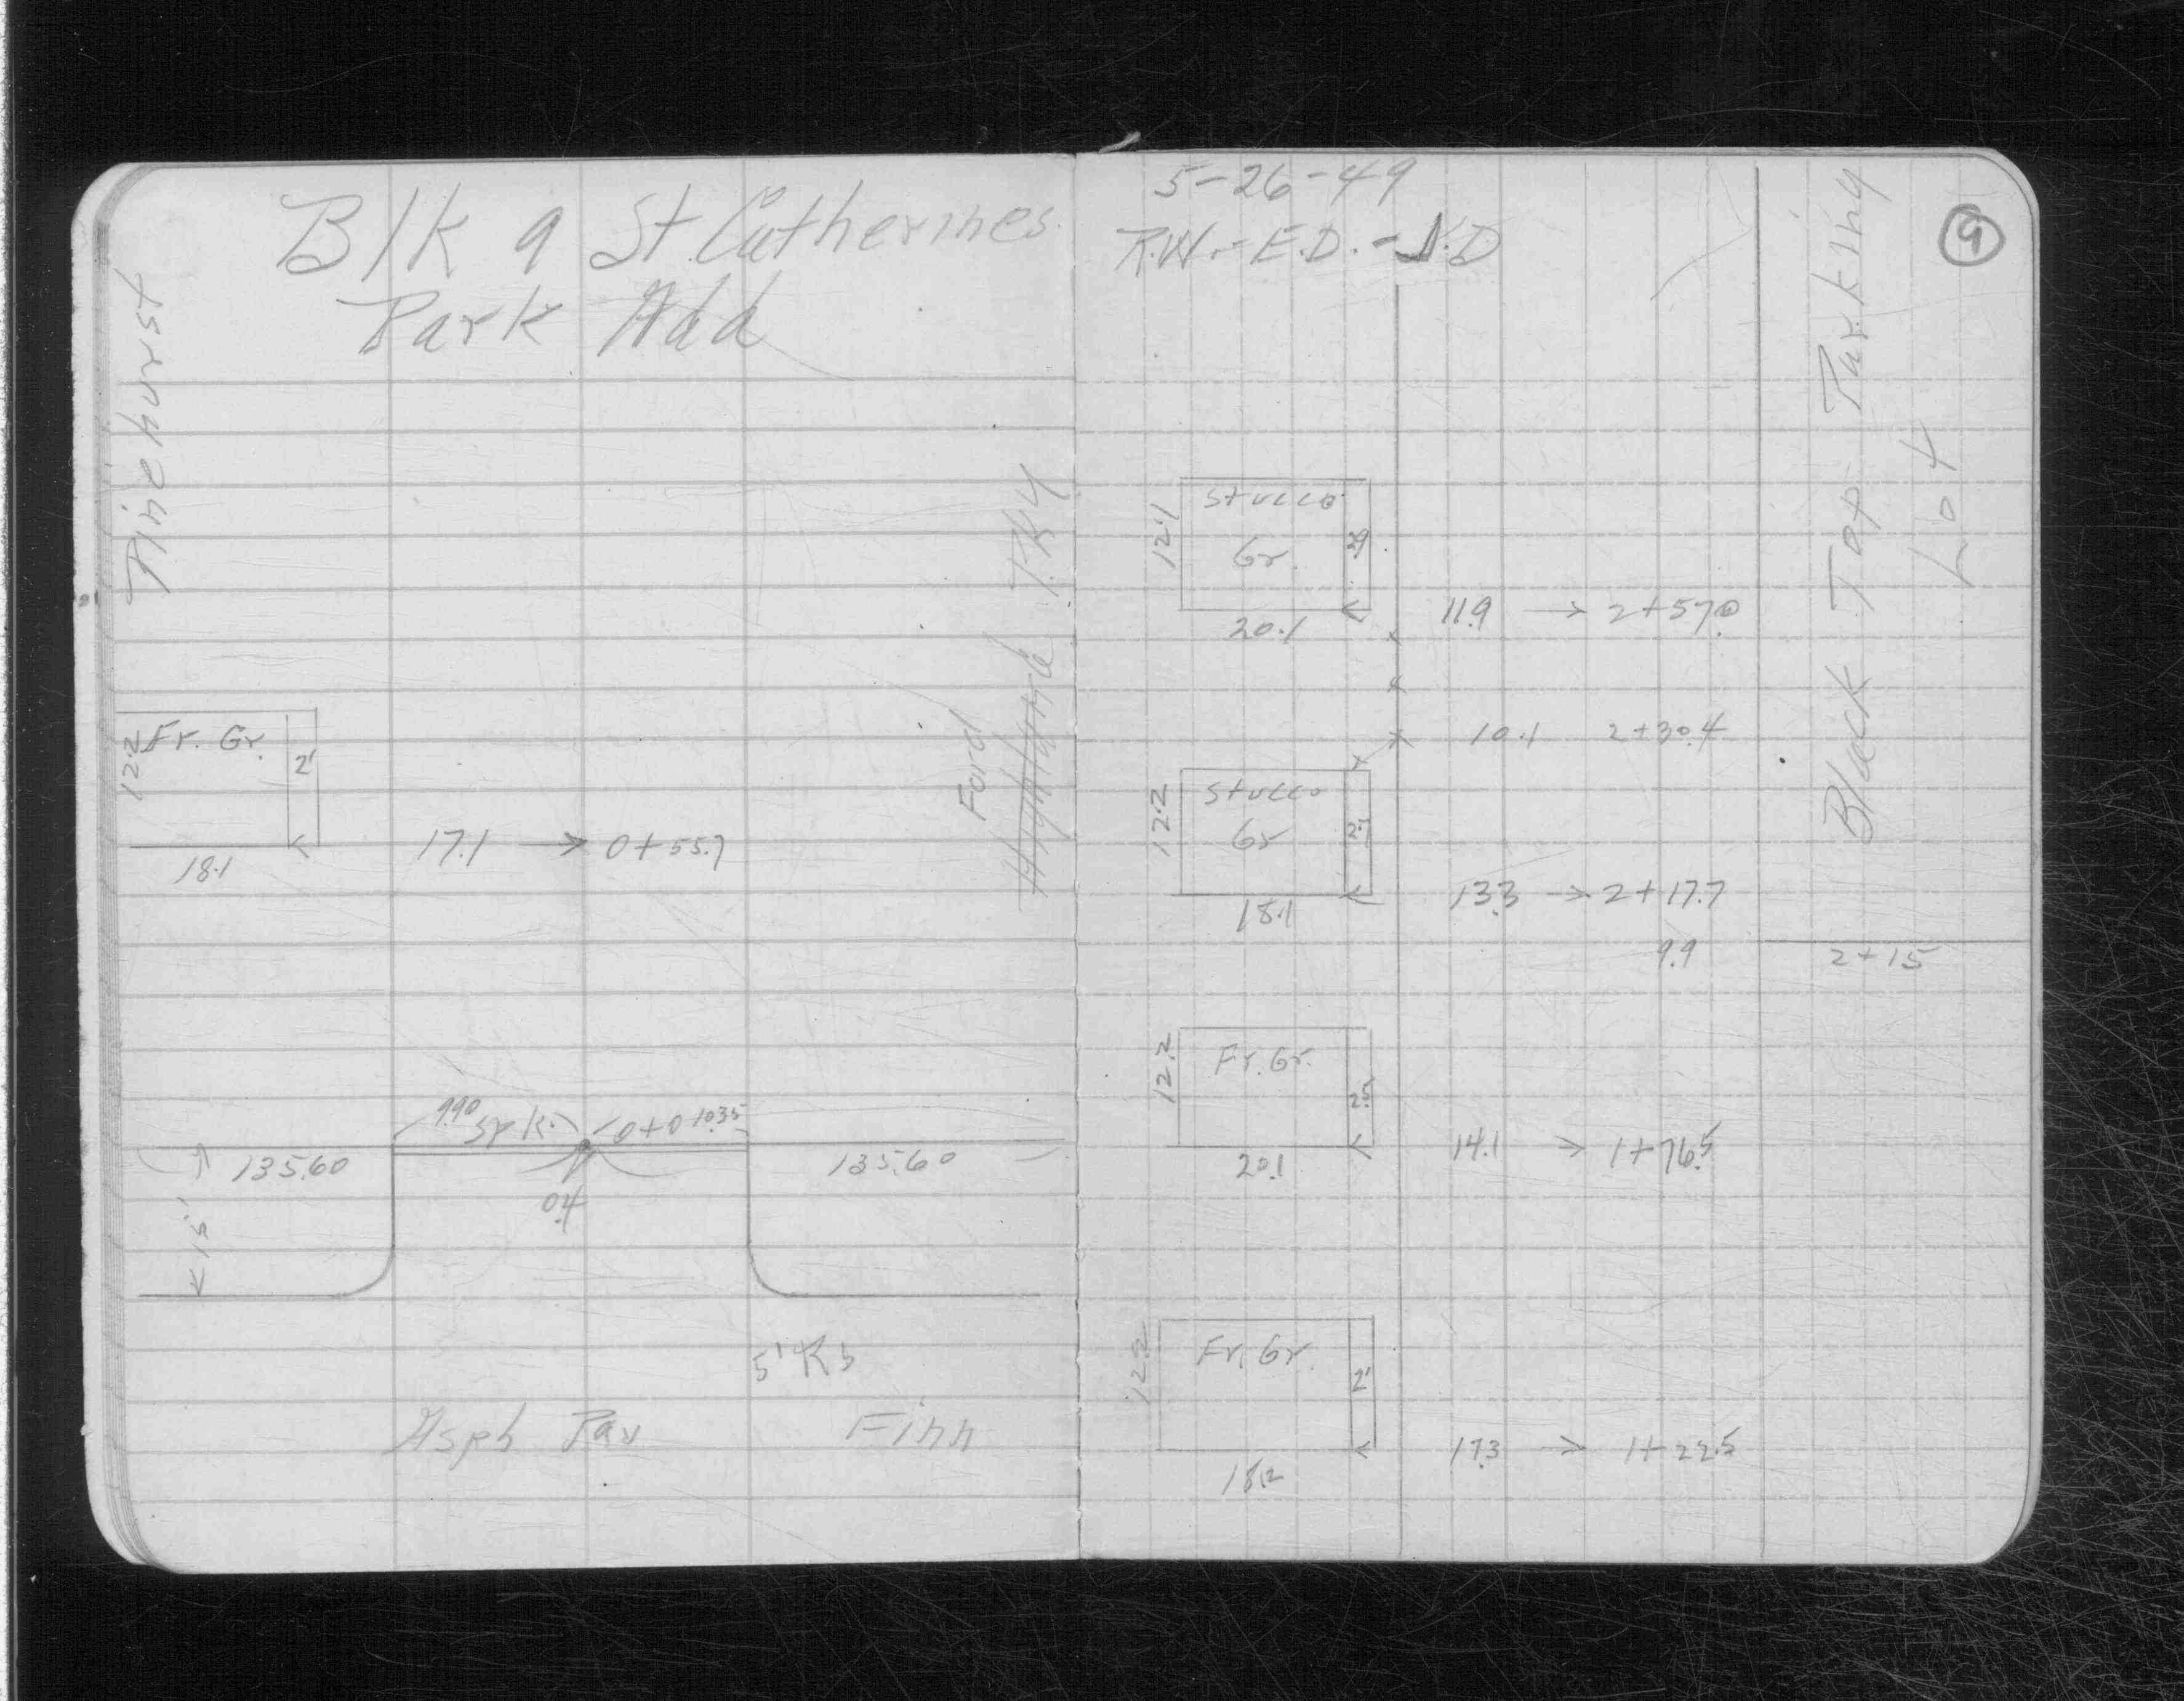 Blk 9 St. Catherines
Park Add
Pinehurst
Fr. Gr.
12.2
2'
18.1
17.1 → 0+55.7
Ford
Highland P.K.Y
9.90 spk. 0+0 10.35
135.60
135.60
15'
0.4
5' R
Asph Pav
Finn
5-26-49
R.W.-E.D.-N.D
9
Black Top Parking
Lot
Stucco
Gr.
12.1
20.1
11.9 → 2+57.0
10.1 2+30.4
Stucco
Gr
12.2
2.7
18.1
13.3 → 2+17.7
9.9
2+15
Fr. Gr.
12.2
2.5
20.1
14.1 → 1+76.5
Fr. Gr.
12.2
2'
18.2
17.3 → 1+22.5